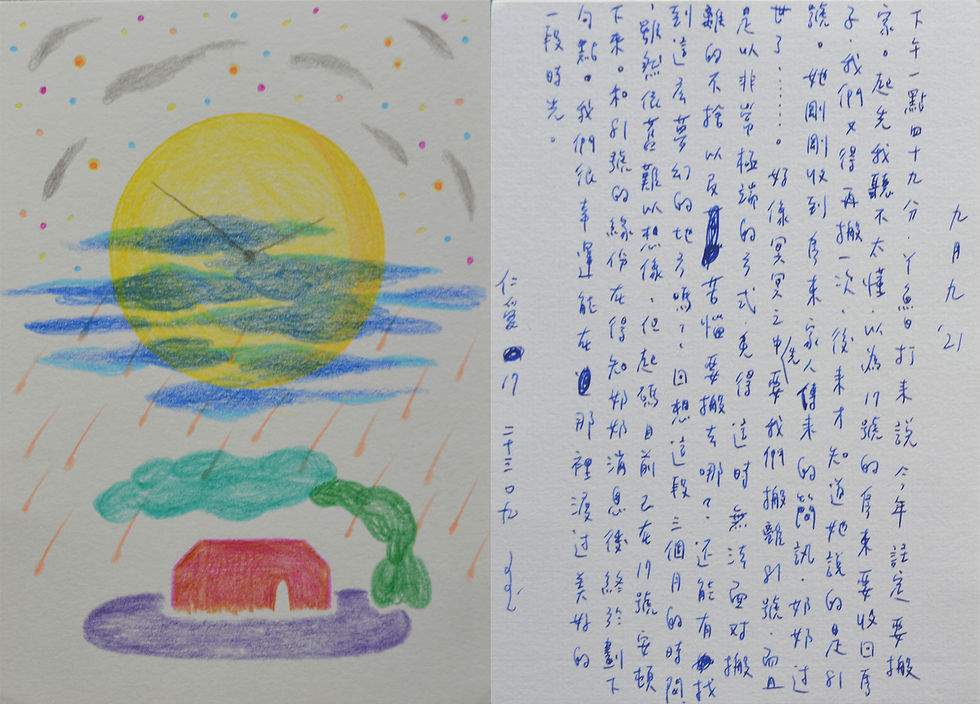 九月九 '21
下午一點四十九分，丫魯打來說今年註定要搬
家。起先我聽不太懂，以為17號的房東要收回房
子，我們又得再搬一次，後來才知道她說的是81
號。她剛剛收到房東家人傳來的簡訊，奶奶过
世了……。好像冥冥之中先要我們搬離81號，而且
是以非常極端的方式，覺得這時無法面对搬
離的不捨以及苦惱要搬去哪？还能有找
到這広夢幻的地方嗎？回想這段三個月的時間
，雖然很苦難以想像，但起碼目前已在17號安頓
下來。和81號的緣份在得知奶奶消息後終於劃下
句點。我們很幸運能在那裡渡过美好的
一段時光。
仁愛 17 二十三：0九